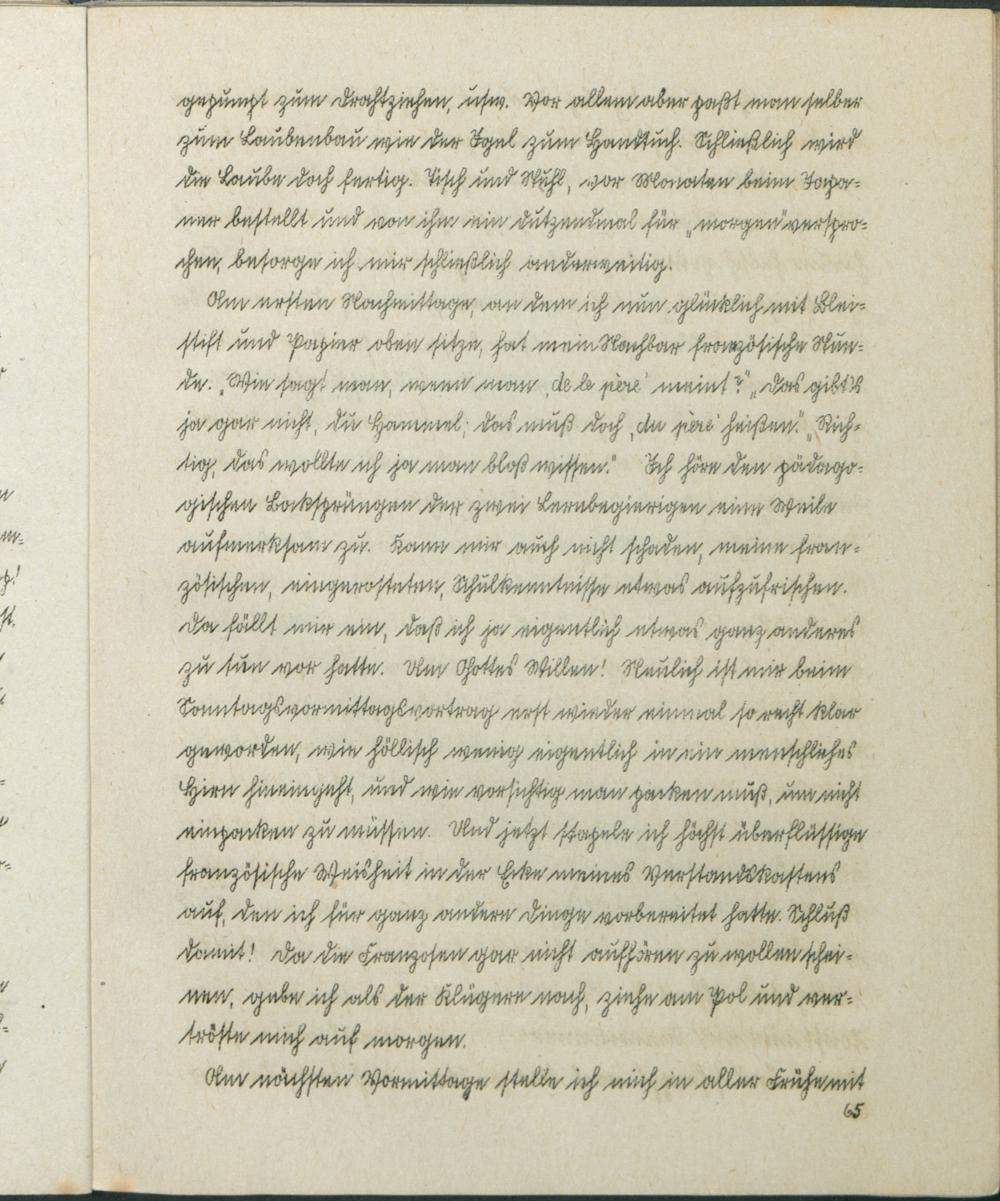 gepumpt zum Drahtziehen, usw. Vor allem aber paßt man selber
zum Laubenbau wie der Igel zum Handtuch. Schließlich wird
die Laube doch fertig. Tisch und Stuhl, vor Monaten beim Japa-
ner bestellt und von ihm ein dutzendmal für „morgen" verspro-
chen, besorge ich mir schließlich anderweitig.
Am ersten Nachmittage, an dem ich nun glücklich mit Blei-
stift und Papier oben sitze, hat mein Nachbar französische Stun-
de. „Wie sagt man, wenn man ‚de le père' meint?" „Das gibt's
ja gar nicht, du Hammel; das muß doch ‚du père' heißen." „Rich-
tig, das wollte ich ja man bloß wissen." Ich höre den pädago-
gischen Bocksprüngen der zwei Lernbegierigen eine Weile
aufmerksam zu. Kann mir auch nicht schaden, meine fran-
zösischen, eingerosteten, Schulkenntnisse etwas aufzufrischen.
Da fällt mir ein, daß ich ja eigentlich etwas ganz anderes
zu tun vor hatte. Um Gottes Willen! Neulich ist mir beim
Sonntagsvormittagsvortrag erst wieder einmal so recht klar
geworden, wie höllisch wenig eigentlich in ein menschliches
Hirn hineingeht, und wie vorsichtig man packen muß, um nicht
einpacken zu müssen. Und jetzt stapele ich höchst überflüssige
französische Weisheit in der Ecke meines Verstandskastens
auf, den ich für ganz andere Dinge vorbereitet hatte. Schluß
damit! Da die Franzosen gar nicht aufhören zu wollen schei-
nen, gebe ich als der Klügere nach, ziehe am Pol und ver-
tröste mich auf morgen.
Am nächsten Vormittage stelle ich mich in aller Frühe mit
65